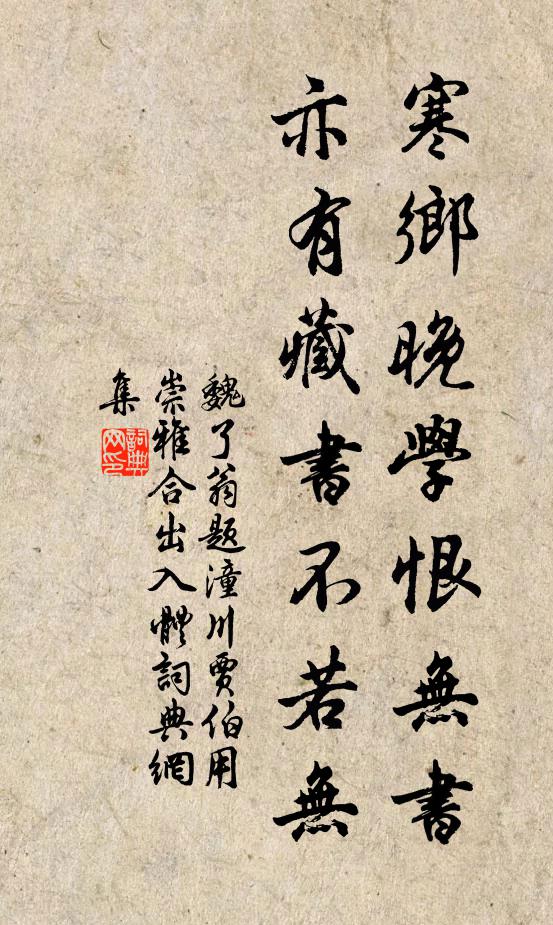 寒鄉晚學恨無書
亦有藏書不若無
魏了翁题潼川賈伯用
崇雅合出入體詞典網
集
詞典
网印